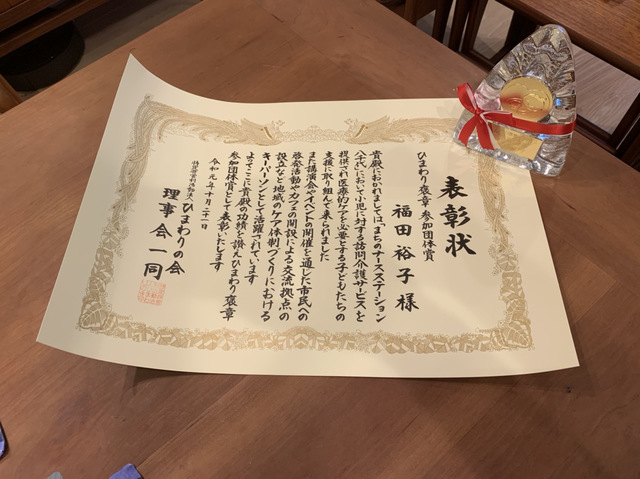 表彰状
ひまわり褒章 参加団体賞
福田裕子様
貴殿におかれましては「まちのナースステーション
八千代」において小児に対する訪問介護サービスを
提供され医療的ケアを必要とする子どもたちの
支援に取り組んで来られました
また講演会やイベントの開催を通じた市民への
啓発活動やカフェの開設による交流拠点の
設立など地域のケア体制づくりにおける
キーパーソンとして活躍されています
よってここに貴殿の功績を讃えひまわり褒章
参加団体賞として表彰いたします
令和元年十月二十一日
特定非営利活動法人 ひまわりの会
理事会一同